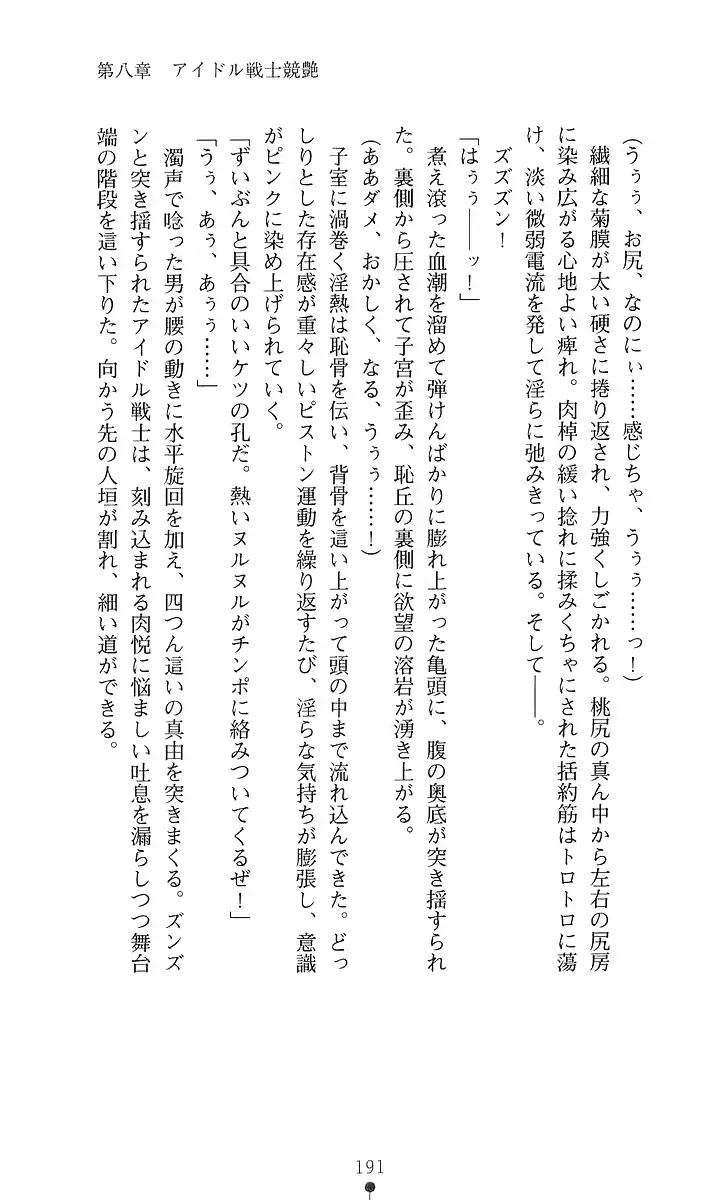 第八章　アイドル戦士競艶
(うぅぅ、お尻、なのにぃ……感じちゃ、うぅぅ……っ！)
繊細な菊膜が太い硬さに捲り返され、力強くしごかれる。桃尻の真ん中から左右の尻房
に染み広がる心地よい痺れ。肉棹の緩い捻れに揉みくちゃにされた括約筋はトロトロに蕩
け、淡い微弱電流を発して淫らに弛みきっている。そして――。
ズズズン！
「はぅぅ――ッ！」
煮え滾った血潮を溜めて弾けんばかりに膨れ上がった亀頭に、腹の奥底が突き揺すられ
た。裏側から圧されて子宮が歪み、恥丘の裏側に欲望の溶岩が湧き上がる。
(ああダメ、おかしく、なる、うぅぅ……！)
子室に渦巻く淫熱は恥骨を伝い、背骨を這い上がって頭の中まで流れ込んできた。どっ
しりとした存在感が重々しいピストン運動を繰り返すたび、淫らな気持ちが膨張し、意識
がピンクに染め上げられていく。
「ずいぶんと具合のいいケツの孔だ。熱いヌルヌルがチンポに絡みついてくるぜ！」
「うぅ、あぅ、あぅぅ……」
濁声で唸った男が腰の動きに水平旋回を加え、四つん這いの真由を突きまくる。ズンズ
ンと突き揺すられたアイドル戦士は、刻み込まれる肉悦に悩ましい吐息を漏らしつつ舞台
端の階段を這い下りた。向かう先の人垣が割れ、細い道ができる。
191